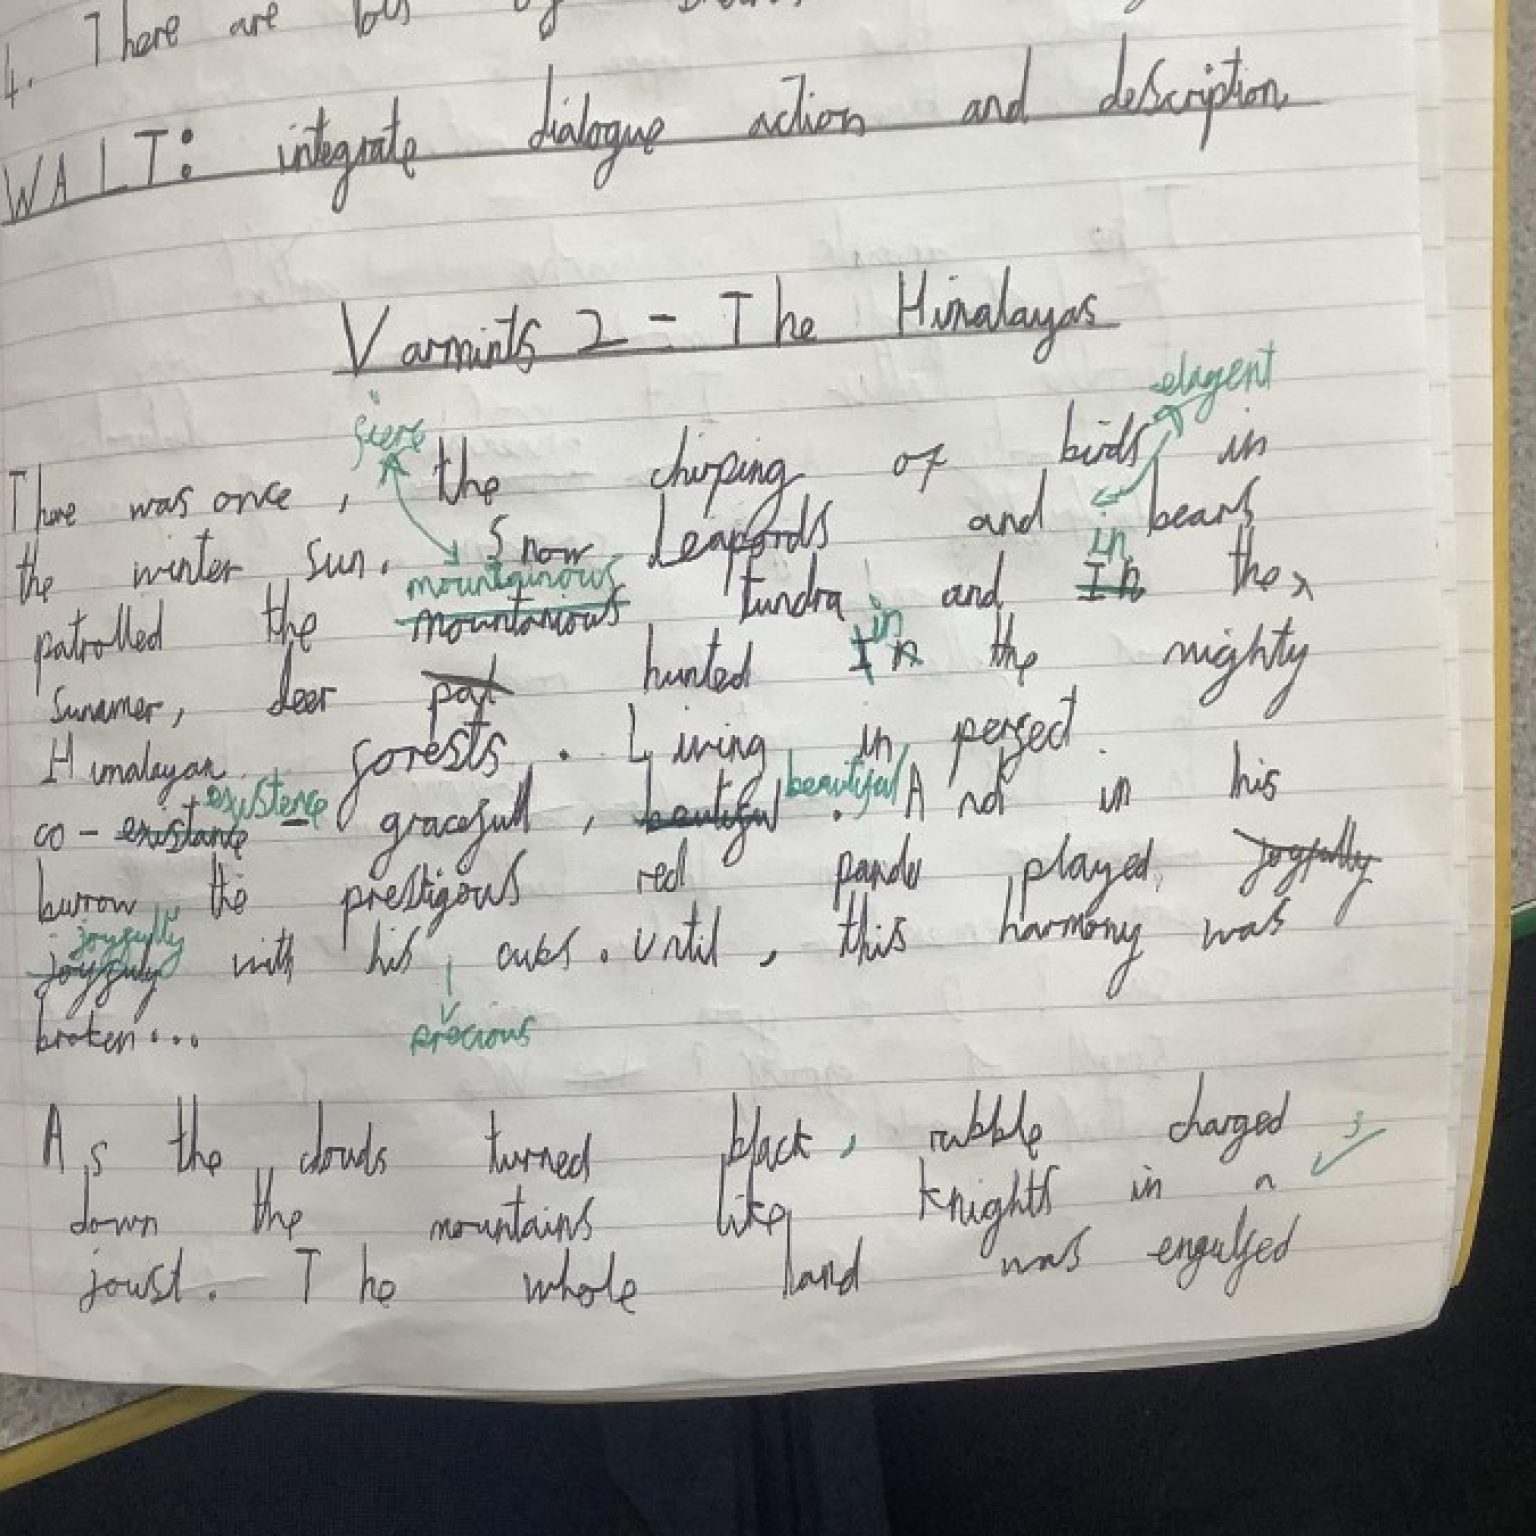 4. There are lots of
WALT: integrate dialogue action and description
Varmints 2 - The Himalayas
elagent
fierc
There was once, the chirping of birds in
the winter sun. Snow Leapords and bears
mountainous in
patrolled the mountanious tundra and In the
in
summer, deer pat hunted In the mighty
Himalayan forests. Living in perfect
existence beautiful
co-existance gracefull, beutiful. And in his
burrow the prestigous red panda played joyfully
joyfully
joyfuly with his cubs. Until, this harmony was
broken...
precious
As the clouds turned black, rubble charged
down the mountains like knights in a
joust. The whole land was engulfed